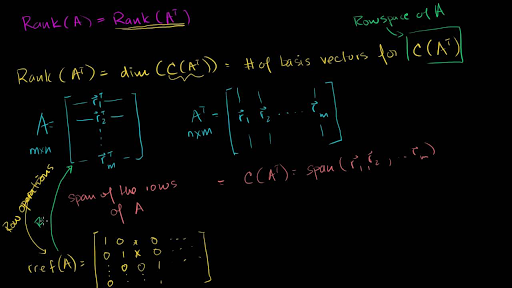 Rank(A) = Rank(Aᵀ)
Rowspace of A
Rank(Aᵀ) = dim(C(Aᵀ)) = # of basis vectors for C(Aᵀ)
A = [ — r⃗₁ᵀ — — r⃗₂ᵀ — ⋮ — r⃗ₘᵀ — ]
m×n
Aᵀ = [ r⃗₁ r⃗₂ .... r⃗ₘ ]
n×m
span of the rows of A
= C(Aᵀ) = span(r⃗₁, r⃗₂, ... r⃗ₘ)
Row operations
rref(A) = [ 1 0 x 0 ...
0 1 x 0 ...
: 0 0 1
0 : : : ]